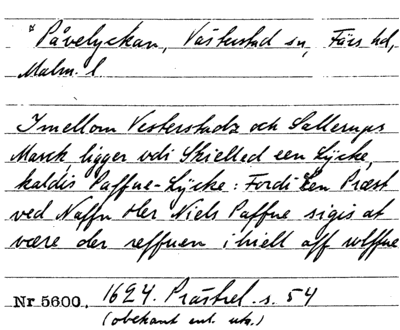 *Påvelyckan, Västerstad sn, Färs hd,
Malm. l.
Imellom Vesterstadz och Sallerups
Marck ligger vdi Skielled een Lycke,
kaldis Paffue-Lycke: Fordi Een Præst
ved Naffn Her Niels Paffue sigis at
være der reffuen ihiell aff wlffue
Nr 5600. 1624. Prästrel. s. 54
(obekant enl. utg.)